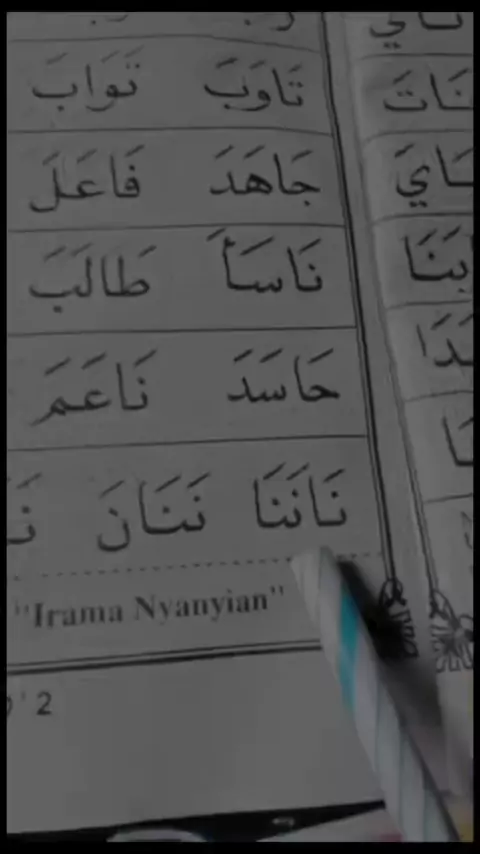 تَاوَبَ تَوَابَ
نَاتَ
جَاهَدَ فَاعَلَ
نَاسَأَ طَالَبَ
حَاسَدَ نَاعَمَ
نَانَنَا نَنَانَ
"Irama Nyanyian"
2